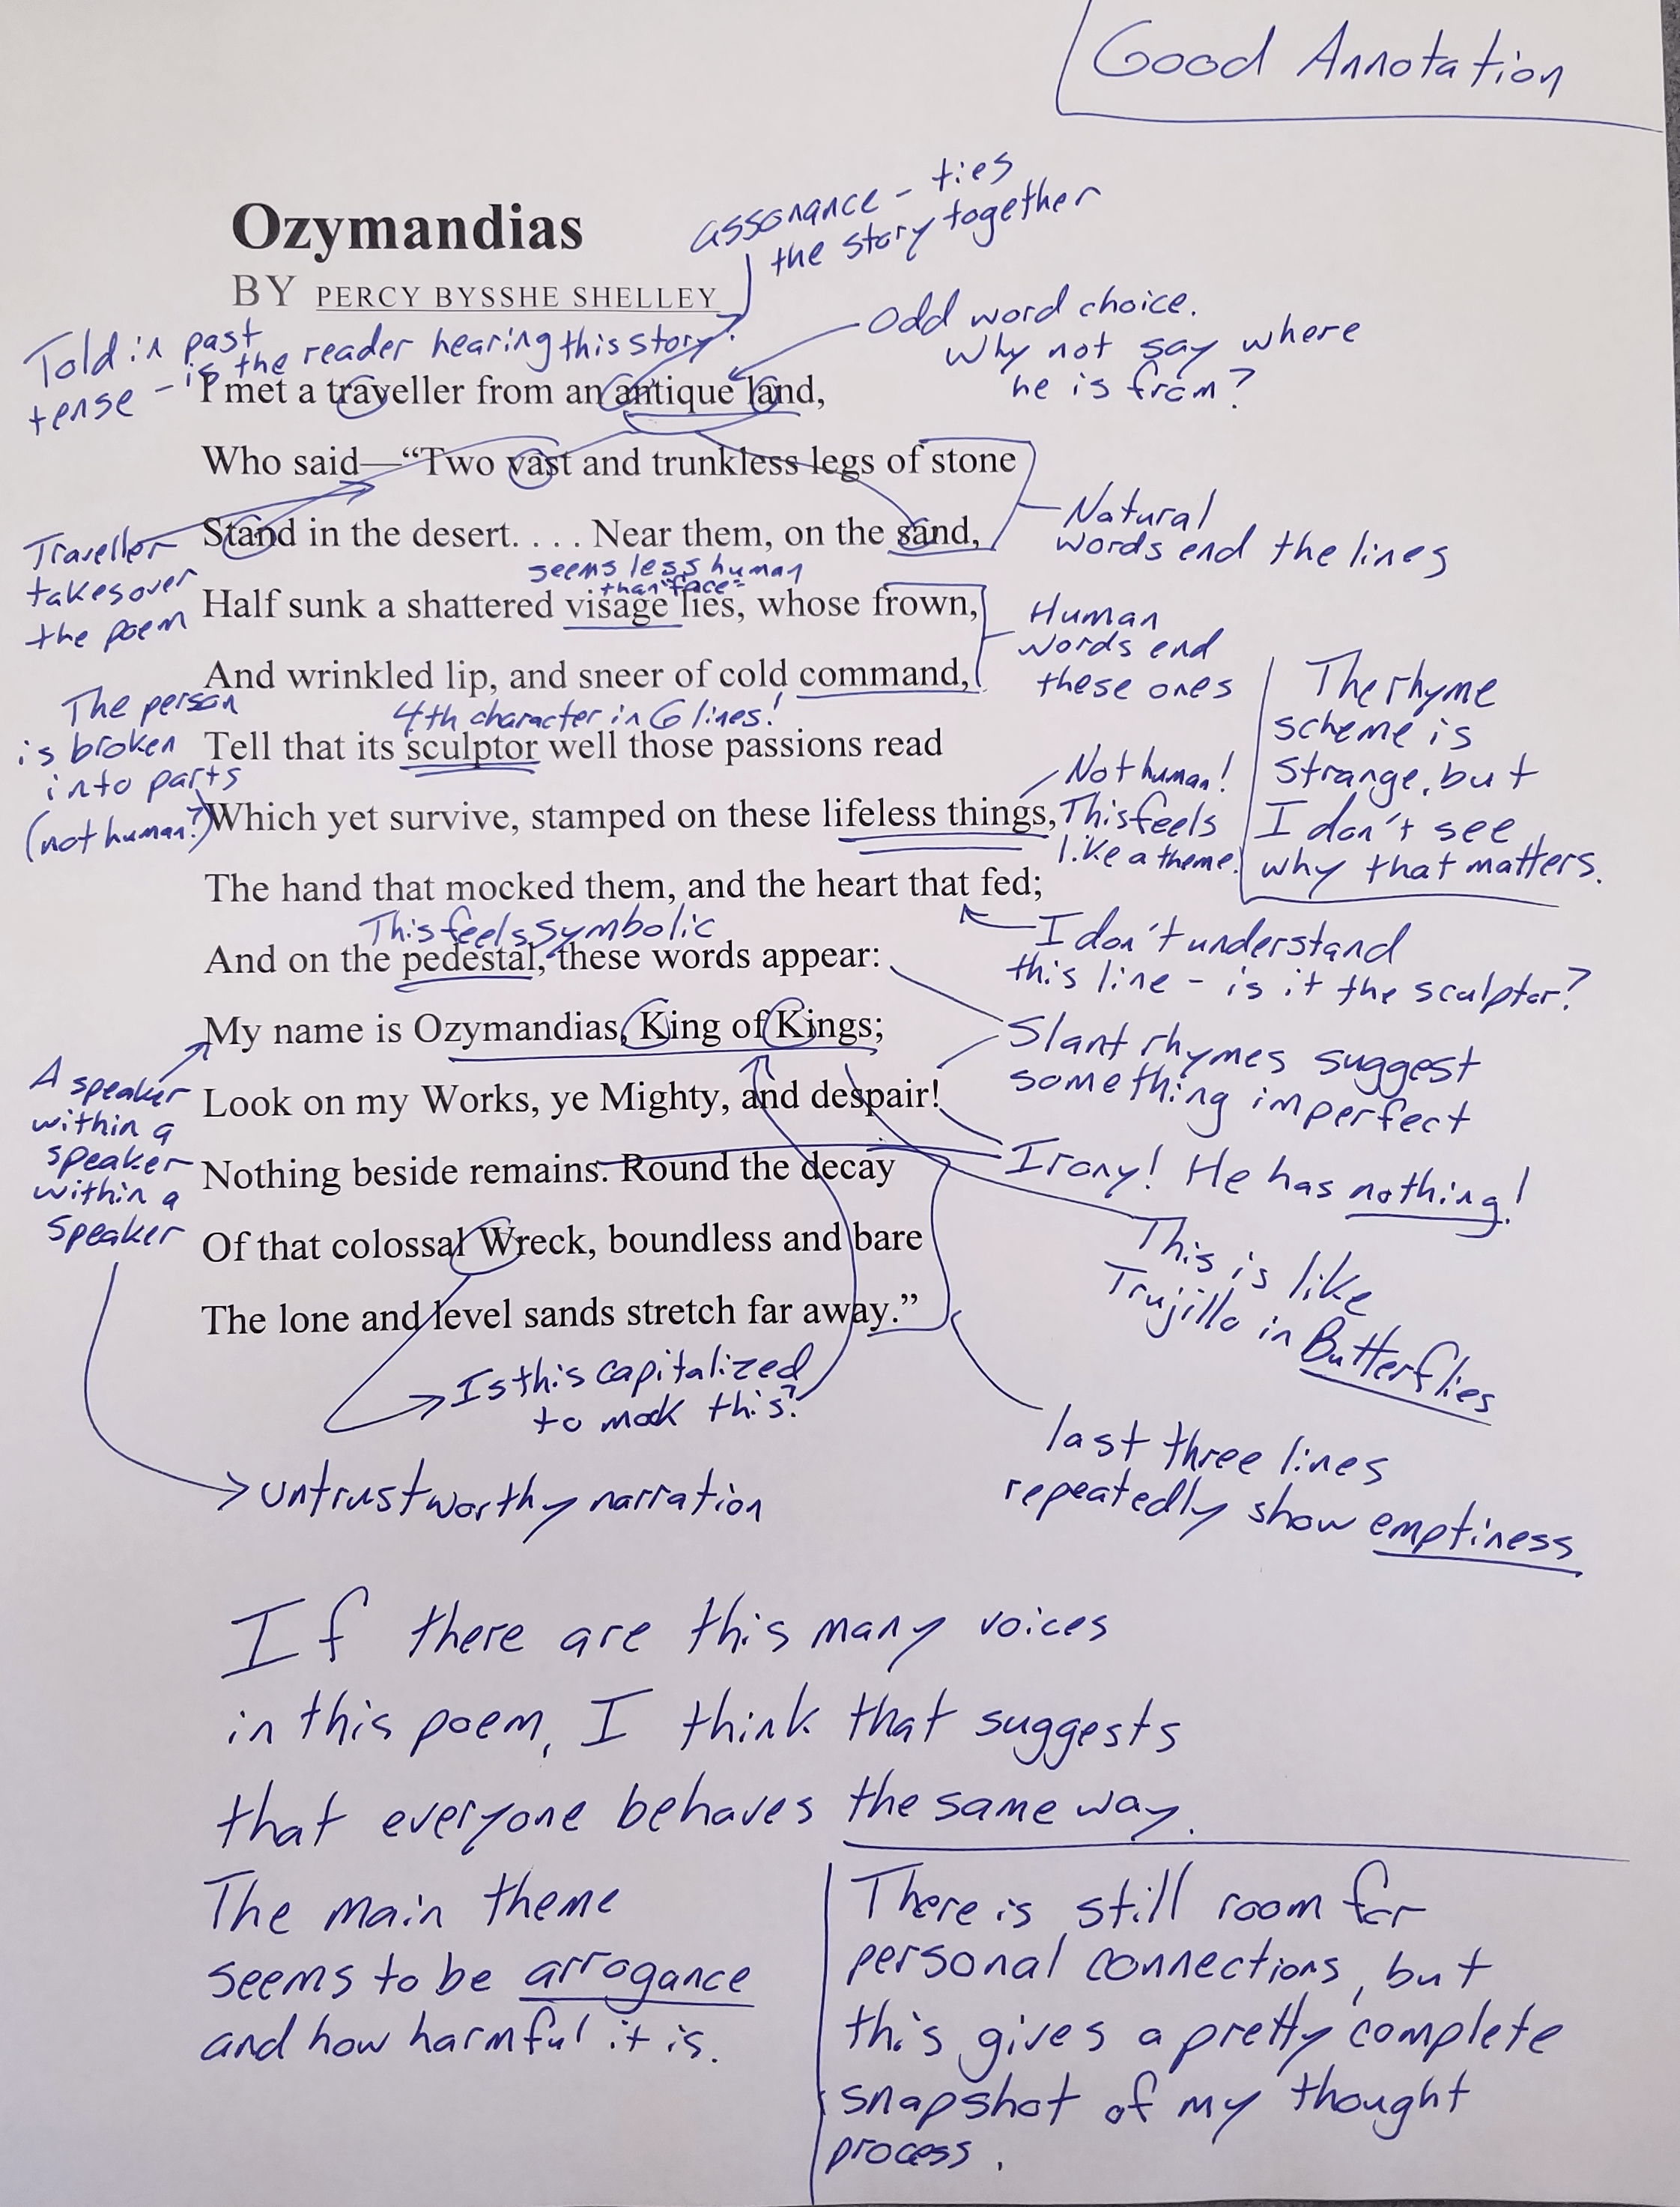 Good Annotation
assonance - ties
the story together
Ozymandias
BY PERCY BYSSHE SHELLEY
Odd word choice.
Why not say where
he is from?
Told in past
tense - is the reader hearing this story?
I met a traveller from an antique land,
Who said—“Two vast and trunkless legs of stone
Natural
words end the lines
Stand in the desert. . . . Near them, on the sand,
Traveller
takes over
the poem
seems less human
than "face"
Half sunk a shattered visage lies, whose frown,
Human
words end
these ones
And wrinkled lip, and sneer of cold command,
The person
is broken
into parts
(not human?)
4th character in 6 lines!
Tell that its sculptor well those passions read
The rhyme
scheme is
strange, but
I don't see
why that matters.
Not human!
This feels
like a theme.
Which yet survive, stamped on these lifeless things,
The hand that mocked them, and the heart that fed;
I don't understand
this line - is it the sculptor?
This feels symbolic
And on the pedestal, these words appear:
My name is Ozymandias, King of Kings;
Slant rhymes suggest
something imperfect
A speaker
within a
speaker
within a
speaker
Look on my Works, ye Mighty, and despair!
Nothing beside remains. Round the decay
Irony! He has nothing!
This is like
Trujillo in Butterflies
Of that colossal Wreck, boundless and bare
The lone and level sands stretch far away.”
Is this capitalized
to mock this?
last three lines
repeatedly show emptiness
untrustworthy narration
If there are this many voices
in this poem, I think that suggests
that everyone behaves the same way.
The main theme
seems to be arrogance
and how harmful it is.
There is still room for
personal connections, but
this gives a pretty complete
snapshot of my thought
process.